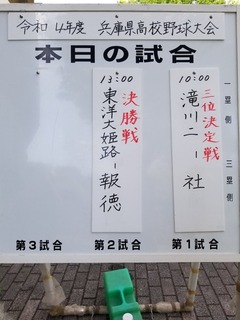 令和4年度 兵庫県高校野球大会
本日の試合
一塁側
三塁側
10:00
三位決定戦
滝川二ー社
第1試合
13:00
決勝戦
東洋大姫路ー報徳
第2試合
第3試合